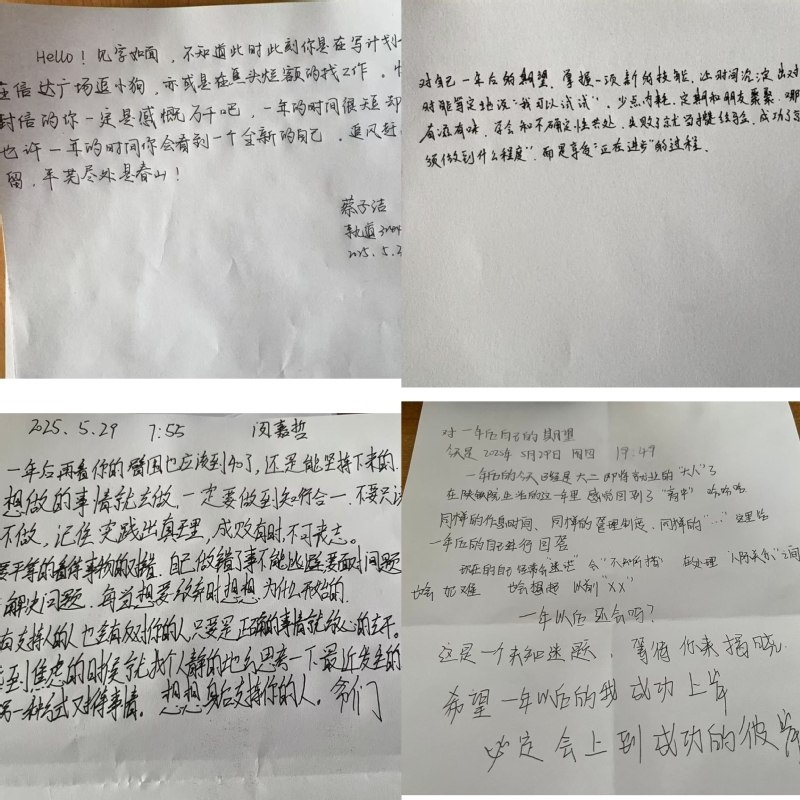 Hello！见字如面，不知道此时此刻你是在写计划
在信达广场逗小狗，亦或是在焦头烂额的找工作。
封信的你一定是感慨万千吧，一年的时间很短却
也许一年的时间你会看到一个全新的自己，追风赶
留，平芜尽处是春山！
蔡子洁
2025.5.2
对自己一年后的期望，掌握一项新的技能，让时间沉淀出对
时能笃定地说“我可以试试”，少点内耗，定期和朋友聚聚，
有滋有味，学会和不确定性共处，失败了就当攒经验，成功了
须做到什么程度”而是享受“正在进步”的过程。
2025.5.29 7:55 闵嘉哲
一年后再看你的留图也应该到和了，还是能坚持下来的.
想做的事情就去做，一定要做到知行合一.不要只说
不做，记住实践出真理，成败有时，不可丧志。
要平等的看待事物的对错，自己做错了事不能逃避要面对问题
解决问题。每当想要放弃时想想为什么开始的.
有支持人的人也会有反对你的人，只要是正确的事情就放心的去干。
到焦虑的时候就找个人静的地方思考一下最近发生的
另一种方式对待事情。想想身后支持你的人。爷们
对一年后自己的期望
今天是 2025年 5月29日 周四 19:49
一年后的今天已经是大二即将创业的“大人”了
在陕邮院生活的这一年里 感觉回到了“高中” 哈哈哈
同样的作息时间、同样的管理制度，同样的“...”这里给
一年后的自己进行回答
现在的自己经常会迷茫 会“不知所措” 在处理“人际关系”之间
也会犯难 也会想起 以前“XX”
一年以后还会吗？
这是一个未知迷题，等待你来揭晓.
希望一年以后的我成功上岸
必定会上到成功的彼岸